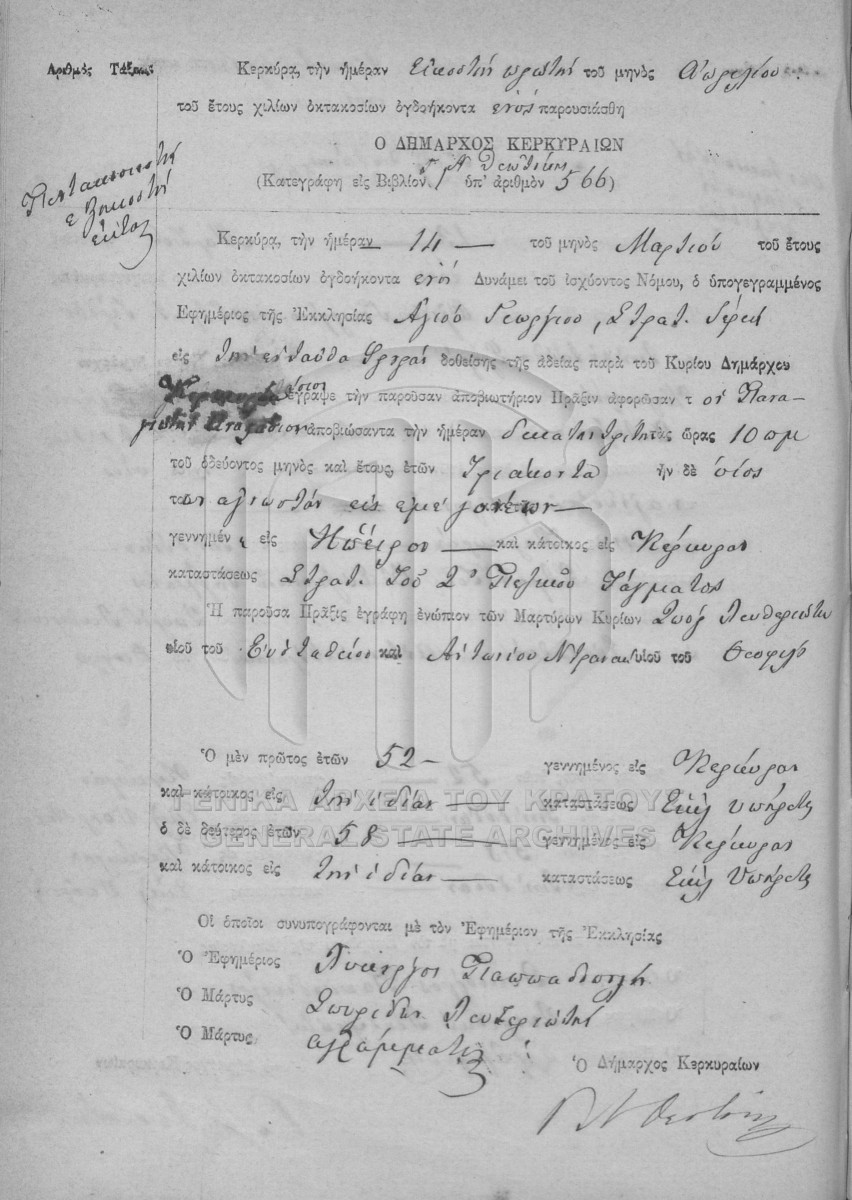 Ἀριθμὸς Τάξεως
Πεντακοσιοστὴ
ἑξηκοστὴ
ἕκτη
Κερκύρᾳ, τὴν ἡμέραν Εἰκοστὴν πρώτην τοῦ μηνὸς Ἀπριλίου
τοῦ ἔτους χιλίων ὀκτακοσίων ὀγδοήκοντα ἑνὸς παρουσιάσθη
Ὁ ΔΗΜΑΡΧΟΣ ΚΕΡΚΥΡΑΙΩΝ
(Κατεγράφη εἰς Βιβλίον ὑπ' ἀριθμὸν 566)
Κερκύρᾳ, τὴν ἡμέραν 14 τοῦ μηνὸς Μαρτίου τοῦ ἔτους
χιλίων ὀκτακοσίων ὀγδοήκοντα ἑνὸς Δυνάμει τοῦ ἰσχύοντος Νόμου, ὁ ὑπογεγραμμένος
Ἐφημέριος τῆς Ἐκκλησίας Ἁγίου Γεωργίου, Στρατ.
εἰς τὴν ἐνταῦθα δοθείσης τῆς ἀδείας παρὰ τοῦ Κυρίου Δημάρχου
ἔγραψε τὴν παροῦσαν ἀποβιωτήριον Πρᾶξιν ἀφορῶσαν τὸν Πανα-
γιώτην ἀποβιώσαντα τὴν ἡμέραν δεκάτην τρίτην τὰς ὥρας 10 πμ
τοῦ ὁδεύοντος μηνὸς καὶ ἔτους, ἐτῶν Τριάκοντα ἦν δὲ υἱὸς
των ἀγνώστων εἰς ἐμὲ γονέων
γεννημέν εἰς Ἤπειρον καὶ κάτοικος εἰς Κέρκυραν
καταστάσεως Στρατ. τοῦ 2ου Πεζικοῦ Τάγματος
Ἡ παροῦσα Πρᾶξις ἐγράφη ἐνώπιον τῶν Μαρτύρων Κυρίων Σπυρ Λευθεριώτη
υἱοῦ τοῦ Εὐσταθίου καὶ Ἀντωνίου υἱοῦ τοῦ Θεοφίλου
Ὁ μὲν πρῶτος ἐτῶν 52 γεννημένος εἰς Κέρκυραν
καὶ κάτοικος εἰς τὴν ἰδίαν καταστάσεως Ἐκκλ Ὑπηρέτης
ὁ δὲ δεύτερος ἐτῶν 58 γεννημένος εἰς Κέρκυραν
καὶ κάτοικος εἰς τὴν ἰδίαν καταστάσεως Ἐκκλ Ὑπηρέτης
ΓΕΝΙΚΑ ΑΡΧΕΙΑ ΤΟΥ ΚΡΑΤΟΥΣ
GENERAL STATE ARCHIVES
Οἱ ὁποῖοι συνυπογράφονται μὲ τὸν Ἐφημέριον τῆς Ἐκκλησίας
Ὁ Ἐφημέριος Λυκοῦργος
Ὁ Μάρτυς Σπυρίδων Λευθεριώτης
Ὁ Μάρτυς ἀγράμματος
Ὁ Δήμαρχος Κερκυραίων